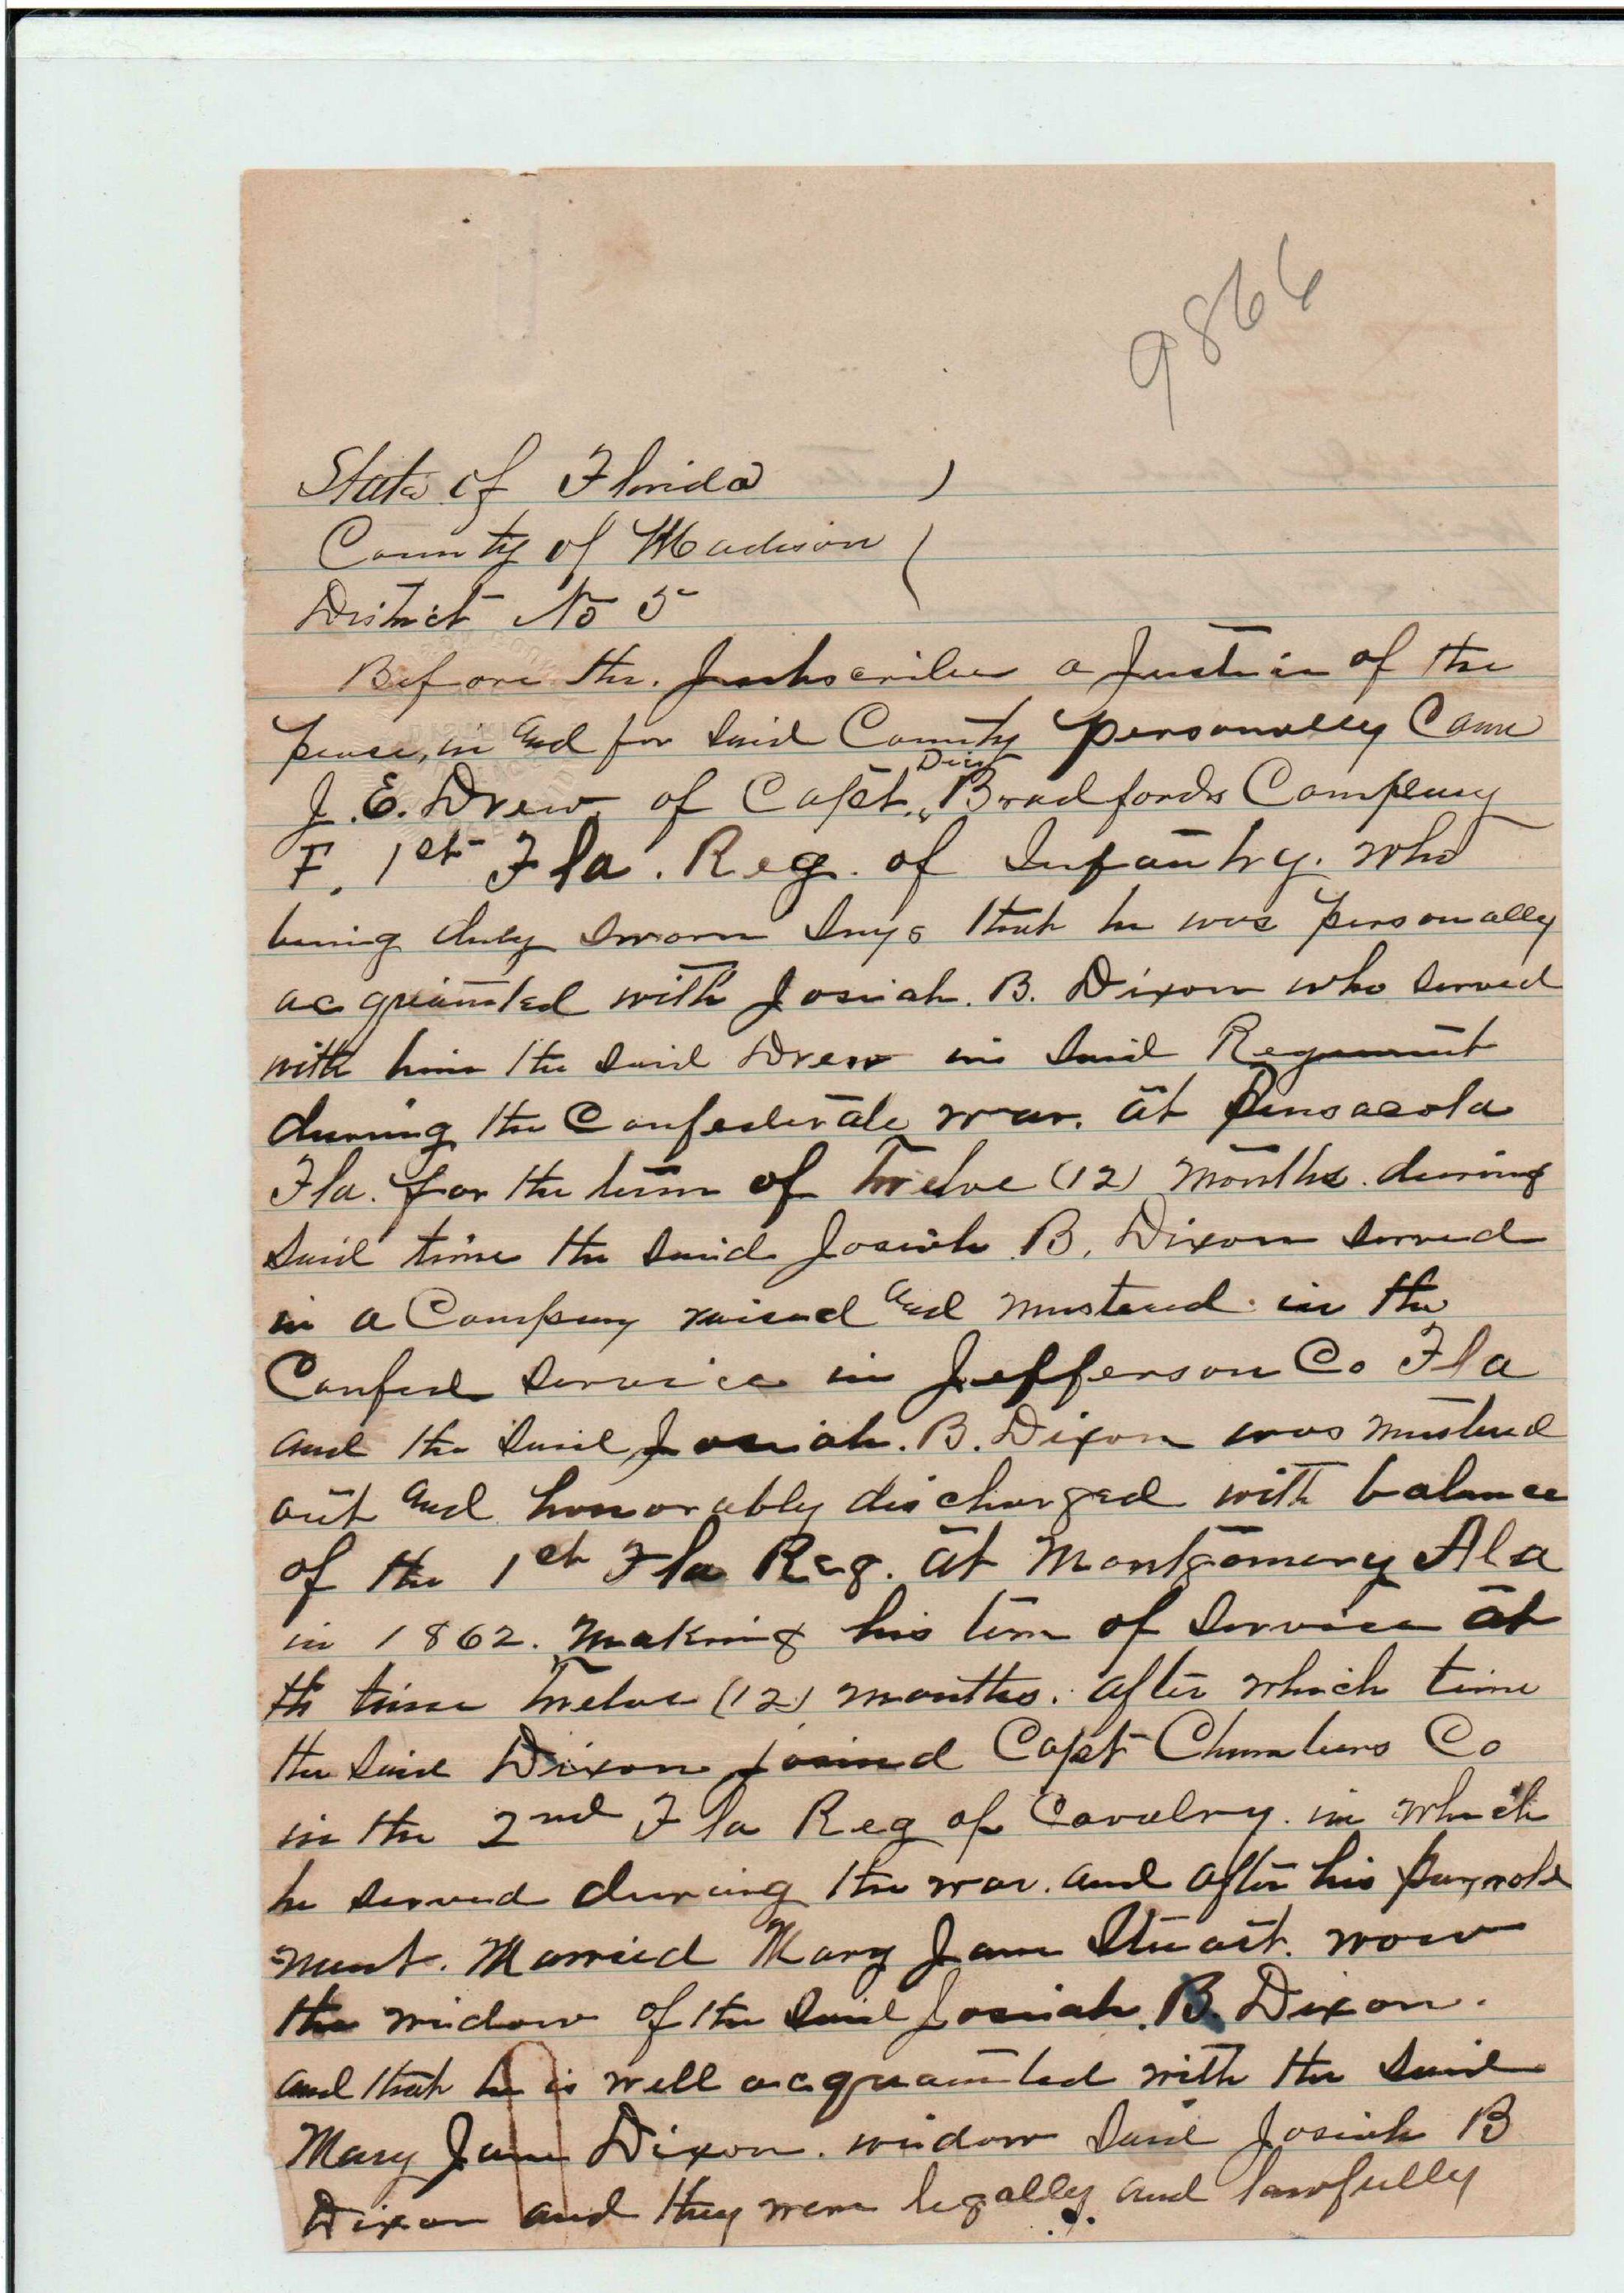 9866
State of Florida )
County of Madison (
District No 5
Before the. Subscriber a Justice of the
peace, in and for said County personally Came
J. E. Drew. of Capt. Dick Bradfords Company
F. 1st Fla. Reg. of Infantry. who
being duly sworn says that he was personally
acquainted with Josiah. B. Dixon who served
with him the said Drew in said Regument
during the Confederate war. at Pensacola
Fla. for the term of Twelve (12) months. during
said time the said Josiah. B. Dixon served
in a Company raised and mustered in the
Confed service in Jefferson Co Fla
and the said Josiah. B. Dixon was mustered
out and honorably discharged with balance
of the 1st Fla Reg. at Montgomery Ala
in 1862. making his term of service at
th time Twelve (12) months. after which time
the said Dixon joined Capt Chambers Co
in the 2nd Fla Reg of Cavalry. in which
he served during the war. and after his payrole
ment. Married Mary Jane Stuart. now
the widow of the said Josiah. B. Dixon.
and that he is well acquainted with the said
Mary Jane Dixon. widow said Josiah B
Dixon and they were legally. and lawfully